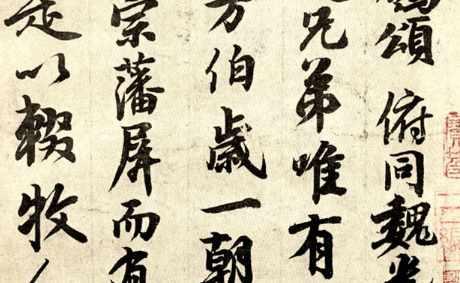 頌 俯同魏光
兄弟唯有
方伯歲一朝
崇藩屏而有
是以輟牧人